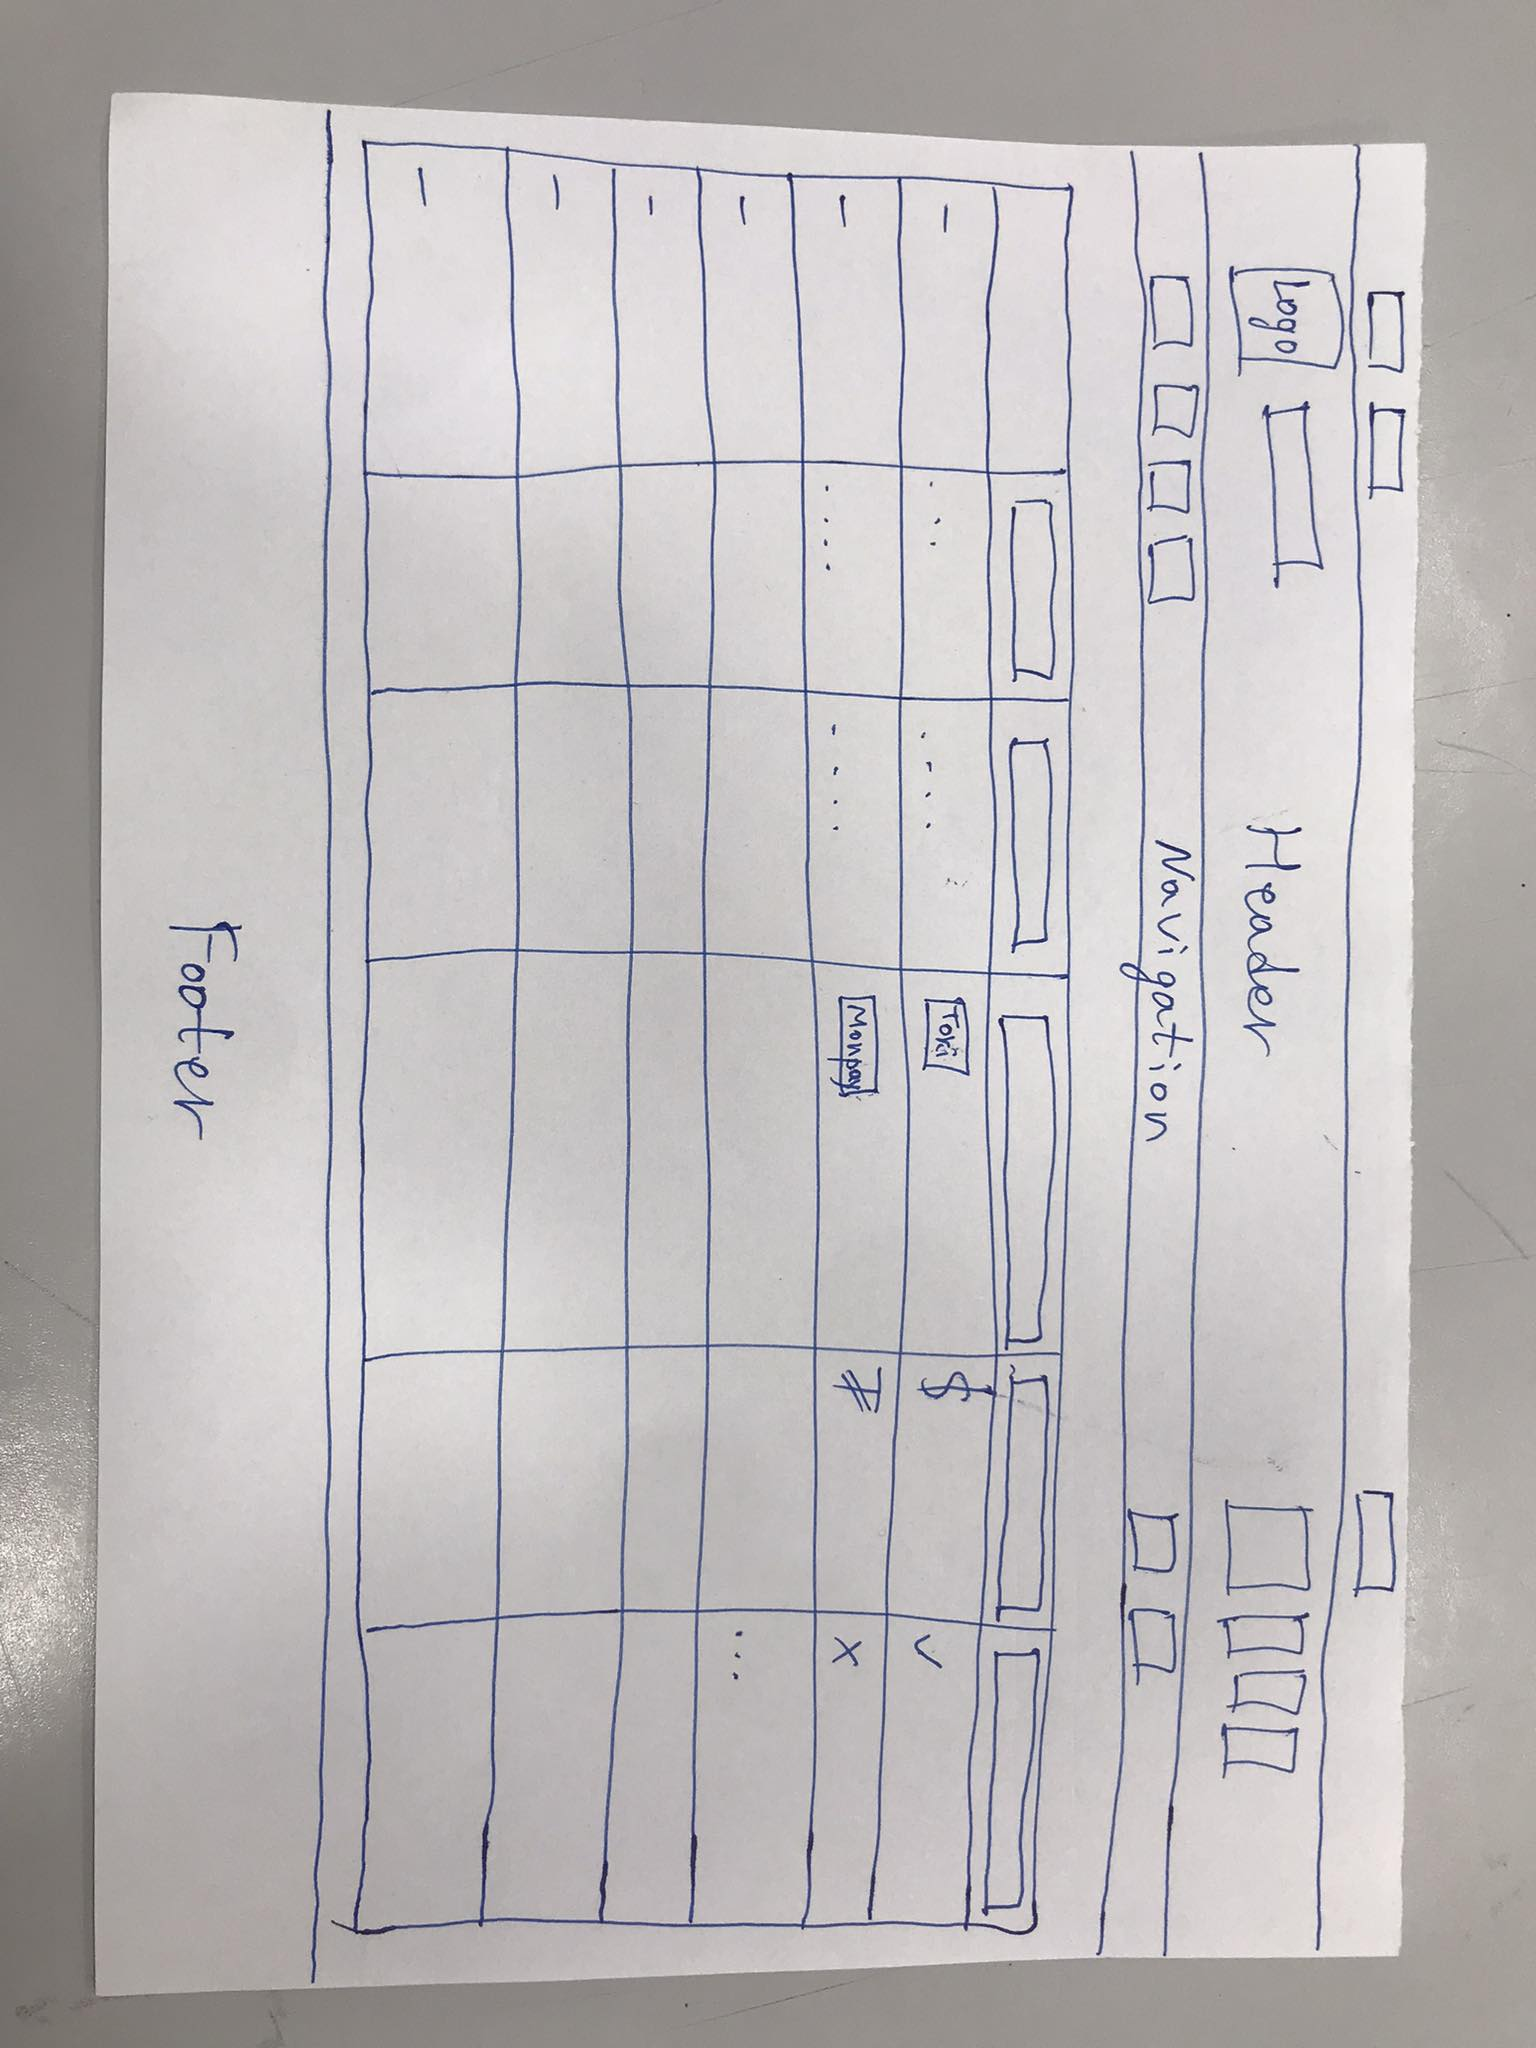 Logo
Header
Navigation
Toki $ ✓
Monpay ₮ x
Footer